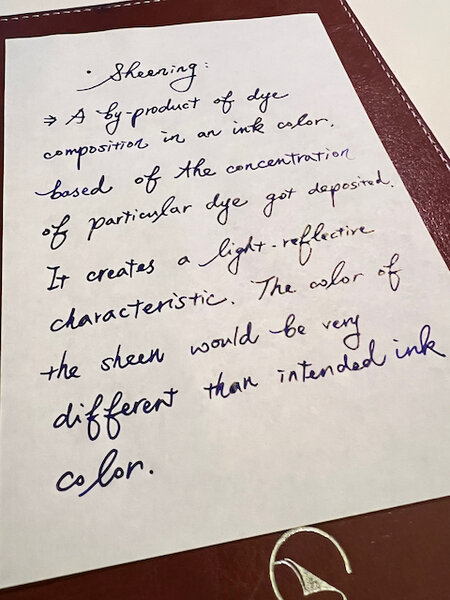 • Sheening:
⇒ A by-product of dye
composition in an ink color.
based of the concentration
of particular dye got deposited.
It creates a light-reflective
characteristic. The color of
the sheen would be very
different than intended ink
color.